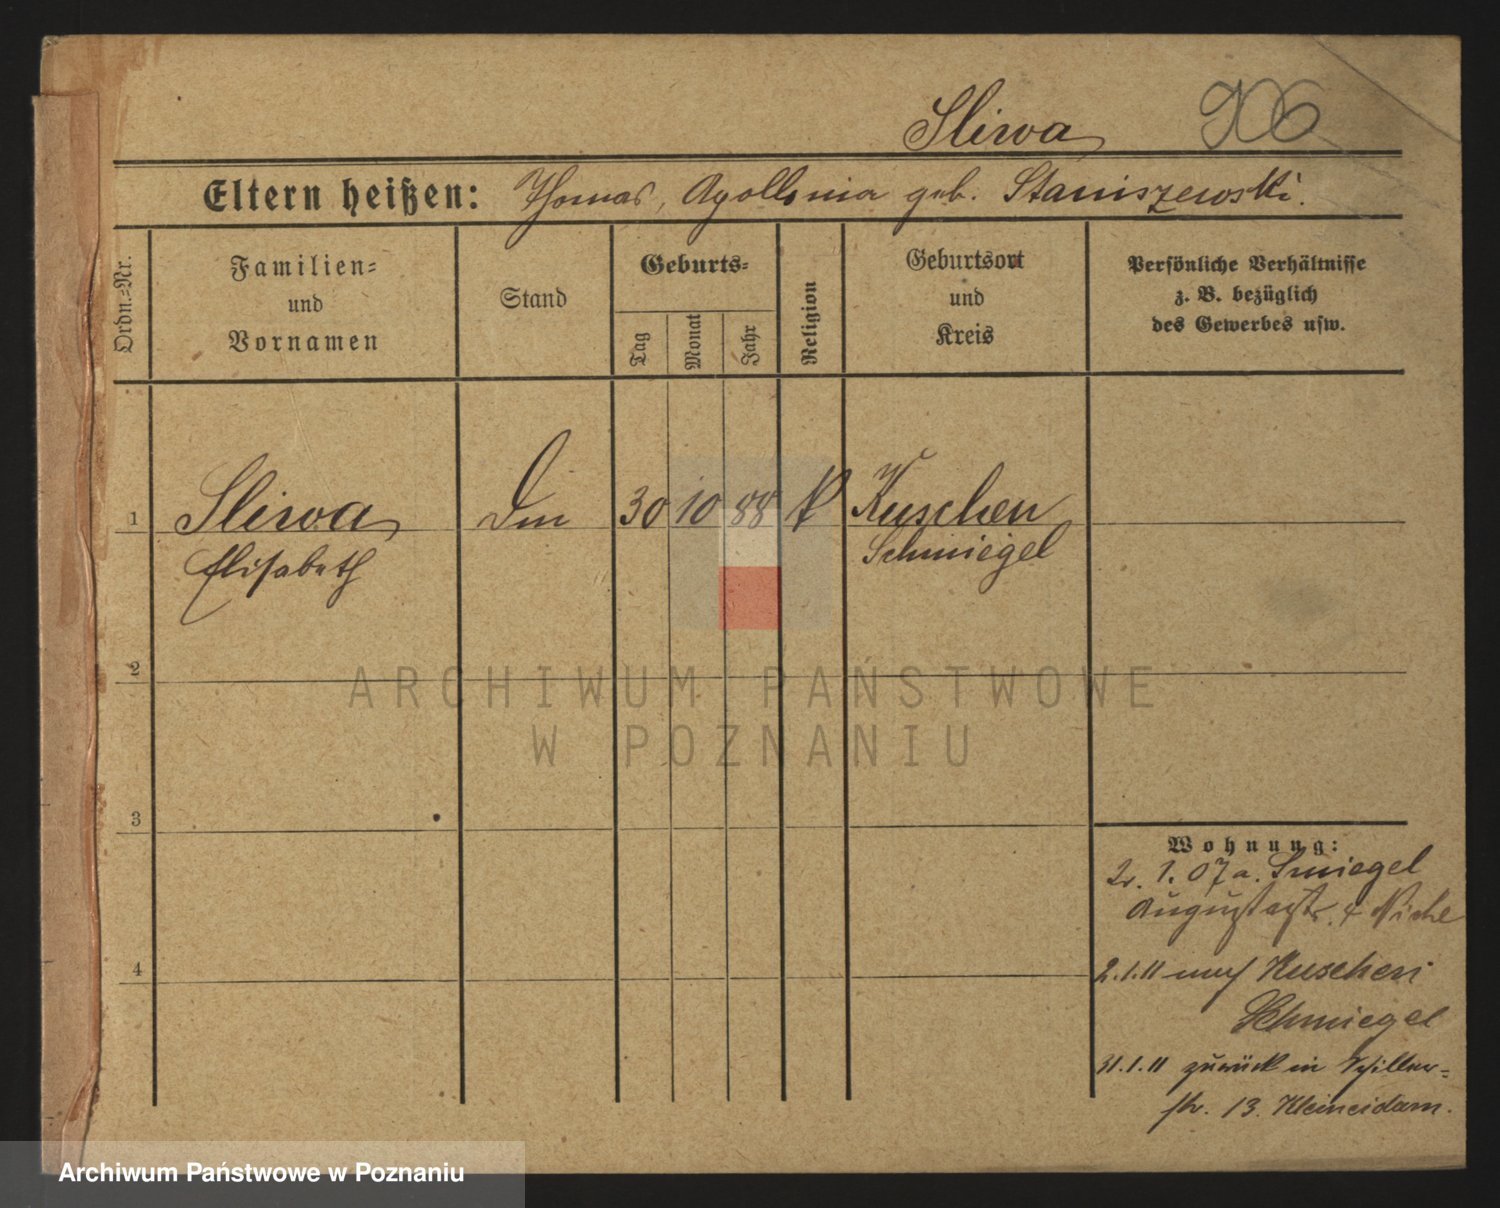 Sliwa 906
Eltern heißen: Thomas, Apollonia geb. Staniszewski.
Ordn.-Nr.
Familien-
und
Vornamen
Stand
Geburts-
Tag
Monat
Jahr
Religion
Geburtsort
und
Kreis
Persönliche Verhältnisse
z. B. bezüglich
des Gewerbes usw.
1 Sliwa Dm 30 10 88 k Kuschen
Elisabeth Schmiegel
2
3
4
Wohnung:
2. 1. 07 a. Smiegel
Augustastr. 4 Niche
2.1.11 nach Kuschen
Schmiegel
31.1.11 zurück in Schiller-
str. 13. Kleineidam.
ARCHIWUM PAŃSTWOWE
W POZNANIU
Archiwum Państwowe w Poznaniu